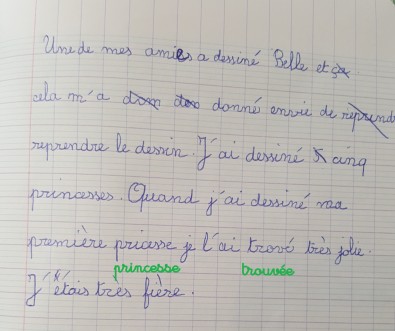 Une de mes amies a dessiné Belle et ça
cela m'a donné envie de reprend
reprendre le dessin. J'ai dessiné cinq
princesses. Quand j'ai dessiné ma
première pricesse je l'ai trové très jolie.
princesse trouvée
J'étais très fière.